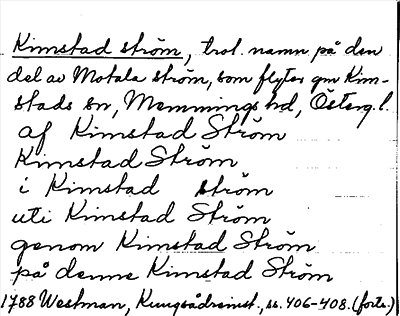 Kimstad ström, trol. namn på den
del av Motala ström, som flyter gm Kim-
stads sn, Memmings hd, Österg.l.
af Kimstad Ström
Kimstad Ström
i Kimstad ström
uti Kimstad Ström
genom Kimstad Ström
på denne Kimstad Ström
1788 Westman, Kungsådreinst., ss. 406-408. (forts.)